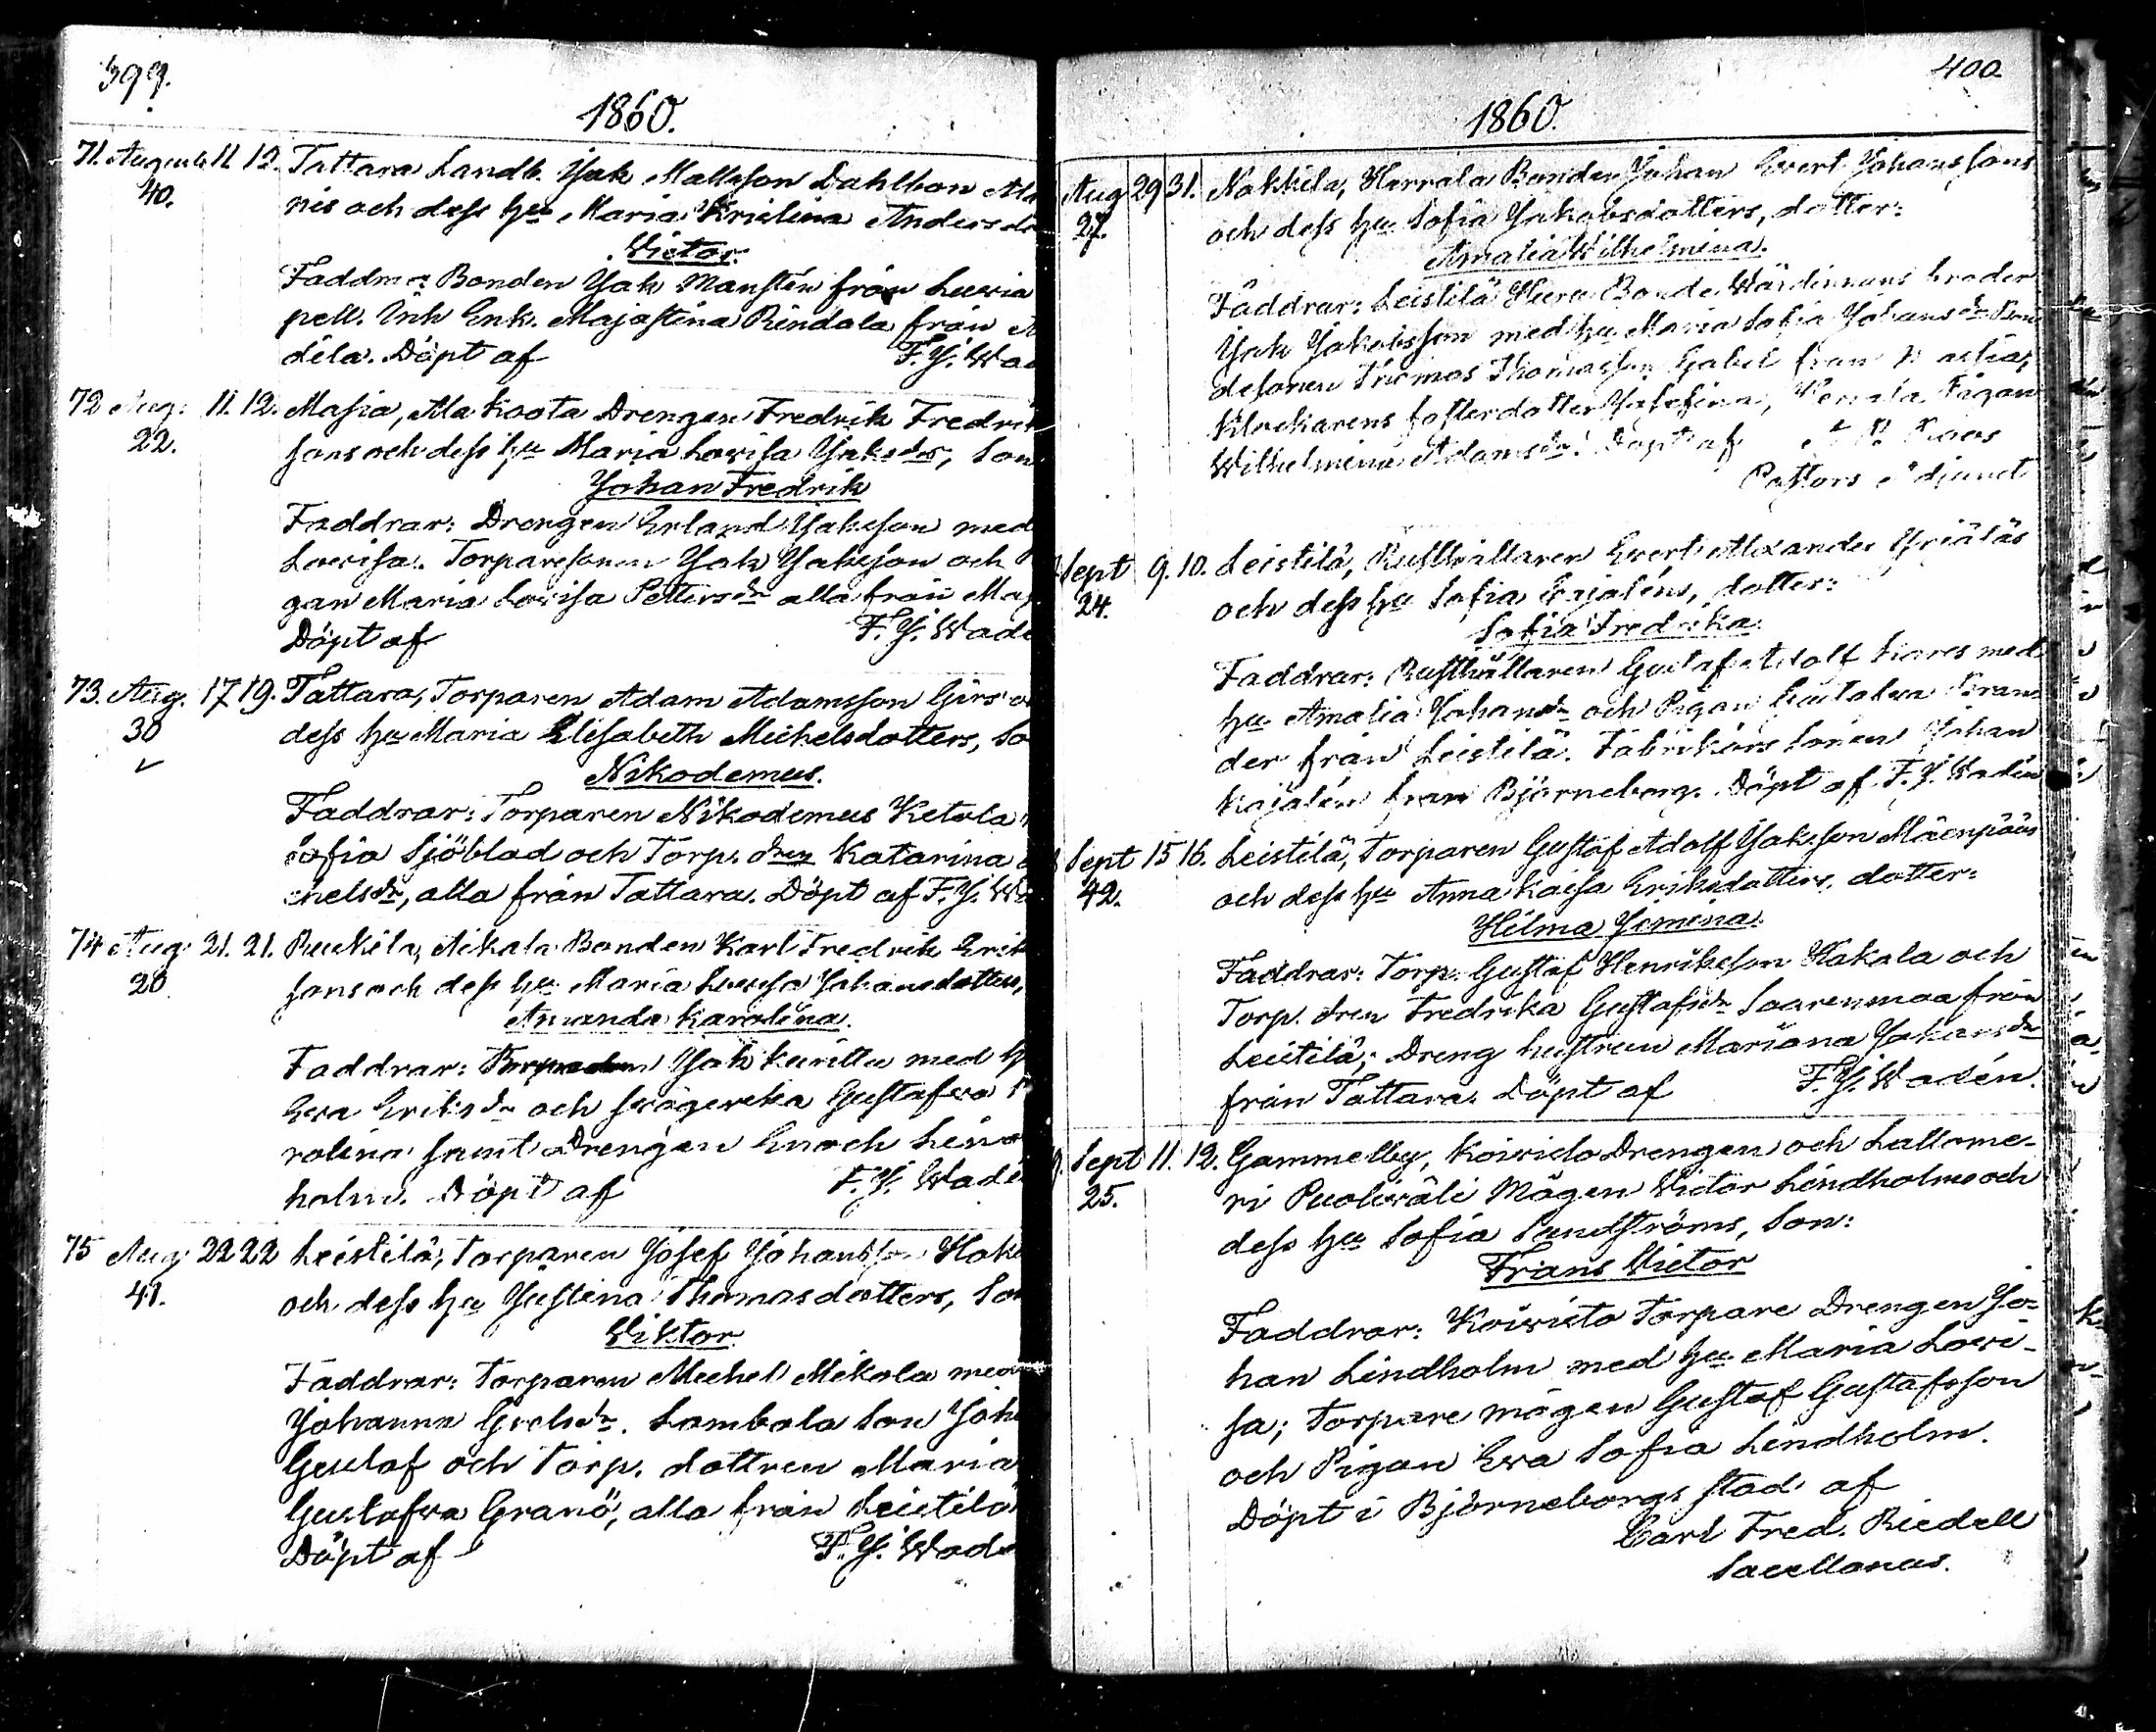 399.
1860.
71. Augusti 11. 12. Tattara Landb. Jak Mattsson Dahlbon
40. nis och dess hu Maria Kristina Anders
Victor.
Faddrar Bonden Jak Mansten från Luvia
pell. Inh Enk. Majastina Rindala från
dila. Döpt af F. J. Wa
72 Aug. 11. 12. Masia, Ala Koota Drengen Fredrik Fredrik
22. sons och dess hu Maria Lovisa Jaksdrs, Son
Johan Fredrik
Faddrar: Drengen Erland Jaksson med
Lovisa. Torparesonen Jak Jaksson och
gan Maria Lovisa Pettersdr alla från Mas
Döpt af F. J. Wade
73. Aug. 17 19. Tattara, Torparen Adam Adamsson Girs o
30 dess hu Maria Elisabeth Michelsdotters, So
Nikodemus.
Faddrar: Torparen Nikodemus Ketola
Sofia Sjöblad och Torp. dren Katarina
chelsdr, alla från Tattara. Döpt af F. J. Wa
74 Aug. 21. 21. Ruskila, Nikala Bonden Karl Fredrik Erik
20 sons och dess hu Maria Lovisa Johansdotters,
Amanda Karolina.
Faddrar: Jak Kurittu med h
Eva Eriksdr och svägerska Gustafva
rolina samt Drengen Enoch Lind
holm. Döpt af F. J. Wadé
75 Aug: 22 22 Leistilä, Torparen Josef Johansson Hak
41. och dess hu Justina Thomasdotters, Son
Viktor
Faddrar: Torparen Michel Mikola med
Johanna Grelsdr. Lambola Son Joh
Gustaf och Torp. dottren Maria
Gustafva Granö, alla från Leistilä
Döpt af F. J. Wade
400.
1860.
Aug 29 31. Nakkila, Herrala Bonden Johan Evert Johanssons
27. och dess hu Sofia Jakobsdotters, dotter:
Amalia Wilhelmina.
Faddrar: Leistilä Bonde Wärdinnans broder
Jak Jakobsson med hu Maria Sofia Johansdr Bon
desonen Thomas Thomasson Gabel från
Klockarens fosterdotter Josefina, Pigan
Wilhelmina Adamsdr. Döpt af
Pastors Adjunct
Sept 9. 10. Leistilä, Rusthållaren Evert Alexander Yriäläs
24. och dess hu Sofia Kajaléns, dotter:
Sofia Fredrika.
Faddrar: Rusthållaren Gustaf Adolf Kares med
hu Amalia Johansdr och Pigan Gustafva Bran
der från Leistilä. Fabrikörs Sonen Johan
Kajalén från Björneborg. Döpt af F. J. Wadén
Sept 15 16. Leistilä, Torparen Gustaf Adolf Jaksson Mäenpääs
42. och dess hu Anna Kaisa Eriksdotters, dotter:
Hilma Jemina.
Faddrar: Torp. Gustaf Henriksson Hakala och
Torp. dren Fredrika Gustafsdr Saarenmaa från
Leistilä; Dreng hustrun Mariana Johansdr
från Tattara. Döpt af F. J. Wadén.
Sept 11. 12. Gammelby, Koivisto Drengen och Lattome-
25. ri Puoliväli Mågen Victor Lindholms och
dess hu Sofia Sundströms, Son:
Frans Victor
Faddrar: Koivisto Torpare Drengen Jo-
han Lindholm med hu Maria Lovi-
sa; Torpare mågen Gustaf Gustafsson
och Pigan Eva Sofia Lindholm.
Döpt i Björneborgs stad af
Carl Fred. Riedell
Sacellanus.